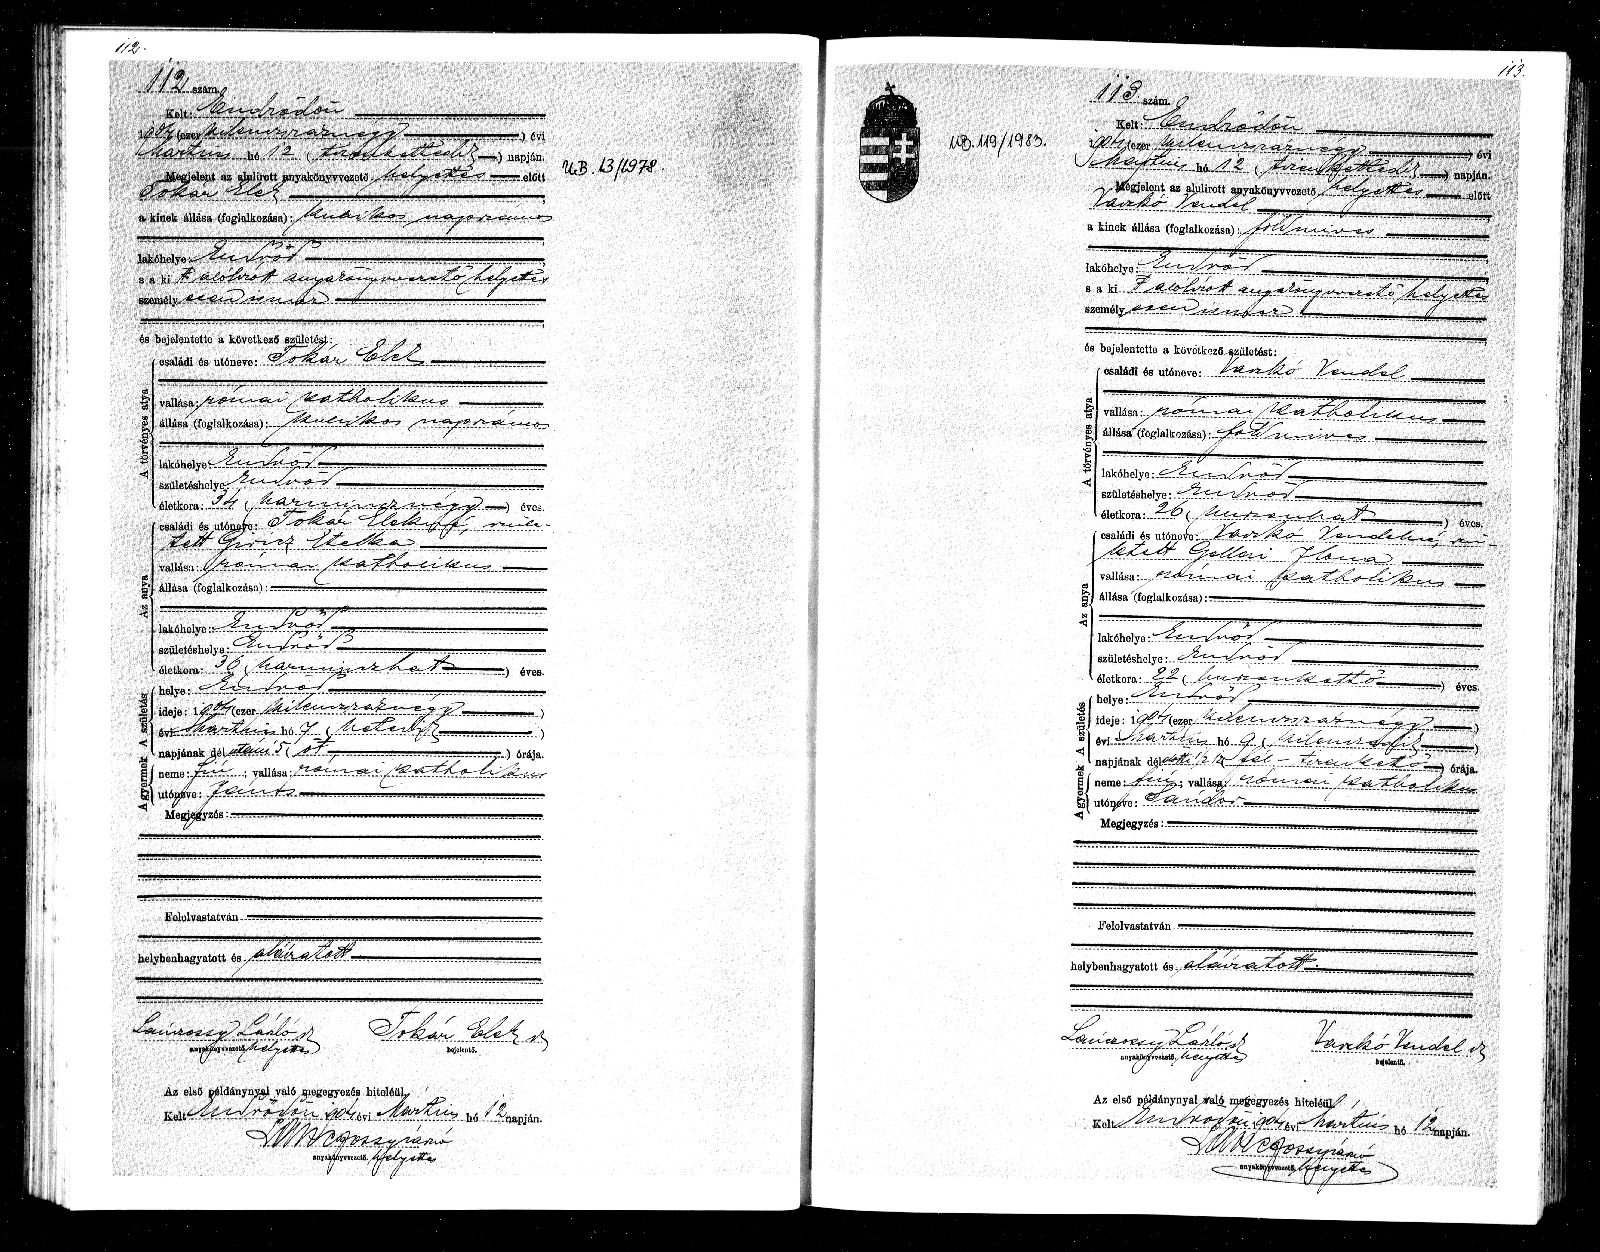 112.
112 szám.
Kelt: Endrődön
1904 (ezer kilenczszáznégy) évi
Martius hó 12 (tizenkettedik) napján.
Megjelent az alulirott anyakönyvvezető helyettes előtt
Tokár Elek
a kinek állása (foglalkozása): kurikos napszámos
lakóhelye: Endrőd
s a ki t alolirott anyakönyvvezető helyettes
személyesen ismer
és bejelentette a következő születést:
A törvényes atya
családi és utóneve: Tokár Elek
vallása: római katholikus
állása (foglalkozása): napszámos
lakóhelye: Endrőd
születéshelye: Endrőd
életkora: 34 (harmincznégy) éves.
Az anya
családi és utóneve: Tokár Elekné, szüle-
tett Giricz Etelka
vallása: római katholikus
állása (foglalkozása):
lakóhelye: Endrőd
születéshelye: Endrőd
életkora: 36 (harminczhat) éves.
A születés
helye: Endrőd
ideje: 1904 (ezer kilenczszáznégy)
évi Martius hó 7 (hetedik)
napjának délutáni 5 (öt) órája.
A gyermek
neme: fiú; vallása: római katholikus
utóneve: János
Megjegyzés:
Felolvastatván
helybenhagyatott és aláiratott
László Tokár Elek
anyakönyvvezető. helyettes bejelentő.
Az első példánynyal való megegyezés hiteléül.
Kelt Endrődön 1904 évi Martius hó 12 napján.
anyakönyvvezető. helyettes
UB. 13/1978.
113.
UB. 119/1983.
113 szám.
Kelt: Endrődön
1904 (ezer kilenczszáznégy) évi
Martius hó 12 (tizenkettedik) napján.
Megjelent az alulirott anyakönyvvezető helyettes előtt
Vaszkó Vendel
a kinek állása (foglalkozása): földmives
lakóhelye: Endrőd
s a ki t alolirott anyakönyvvezető helyettes
személyesen ismer
és bejelentette a következő születést:
A törvényes atya
családi és utóneve: Vaszkó Vendel
vallása: római katholikus
állása (foglalkozása): földmives
lakóhelye: Endrőd
születéshelye: Endrőd
életkora: 26 (huszonhat) éves.
Az anya
családi és utóneve: Vaszkó Vendelné, szü-
letett Gelleri Ilona
vallása: római katholikus
állása (foglalkozása):
lakóhelye: Endrőd
születéshelye: Endrőd
életkora: 22 (huszonkettő) éves.
A születés
helye: Endrőd
ideje: 1904 (ezer kilenczszáznégy)
évi Martius hó 9 (kilenczedik)
napjának délelőtti ½12 (fél-tizenkettő) órája.
A gyermek
neme: fiú; vallása: római katholikus
utóneve: Sándor
Megjegyzés:
Felolvastatván
helybenhagyatott és aláiratott.
László Vaszkó Vendel
anyakönyvvezető. helyettes bejelentő.
Az első példánynyal való megegyezés hiteléül.
Kelt Endrődön 1904 évi Mártius hó 12 napján.
anyakönyvvezető. helyettes